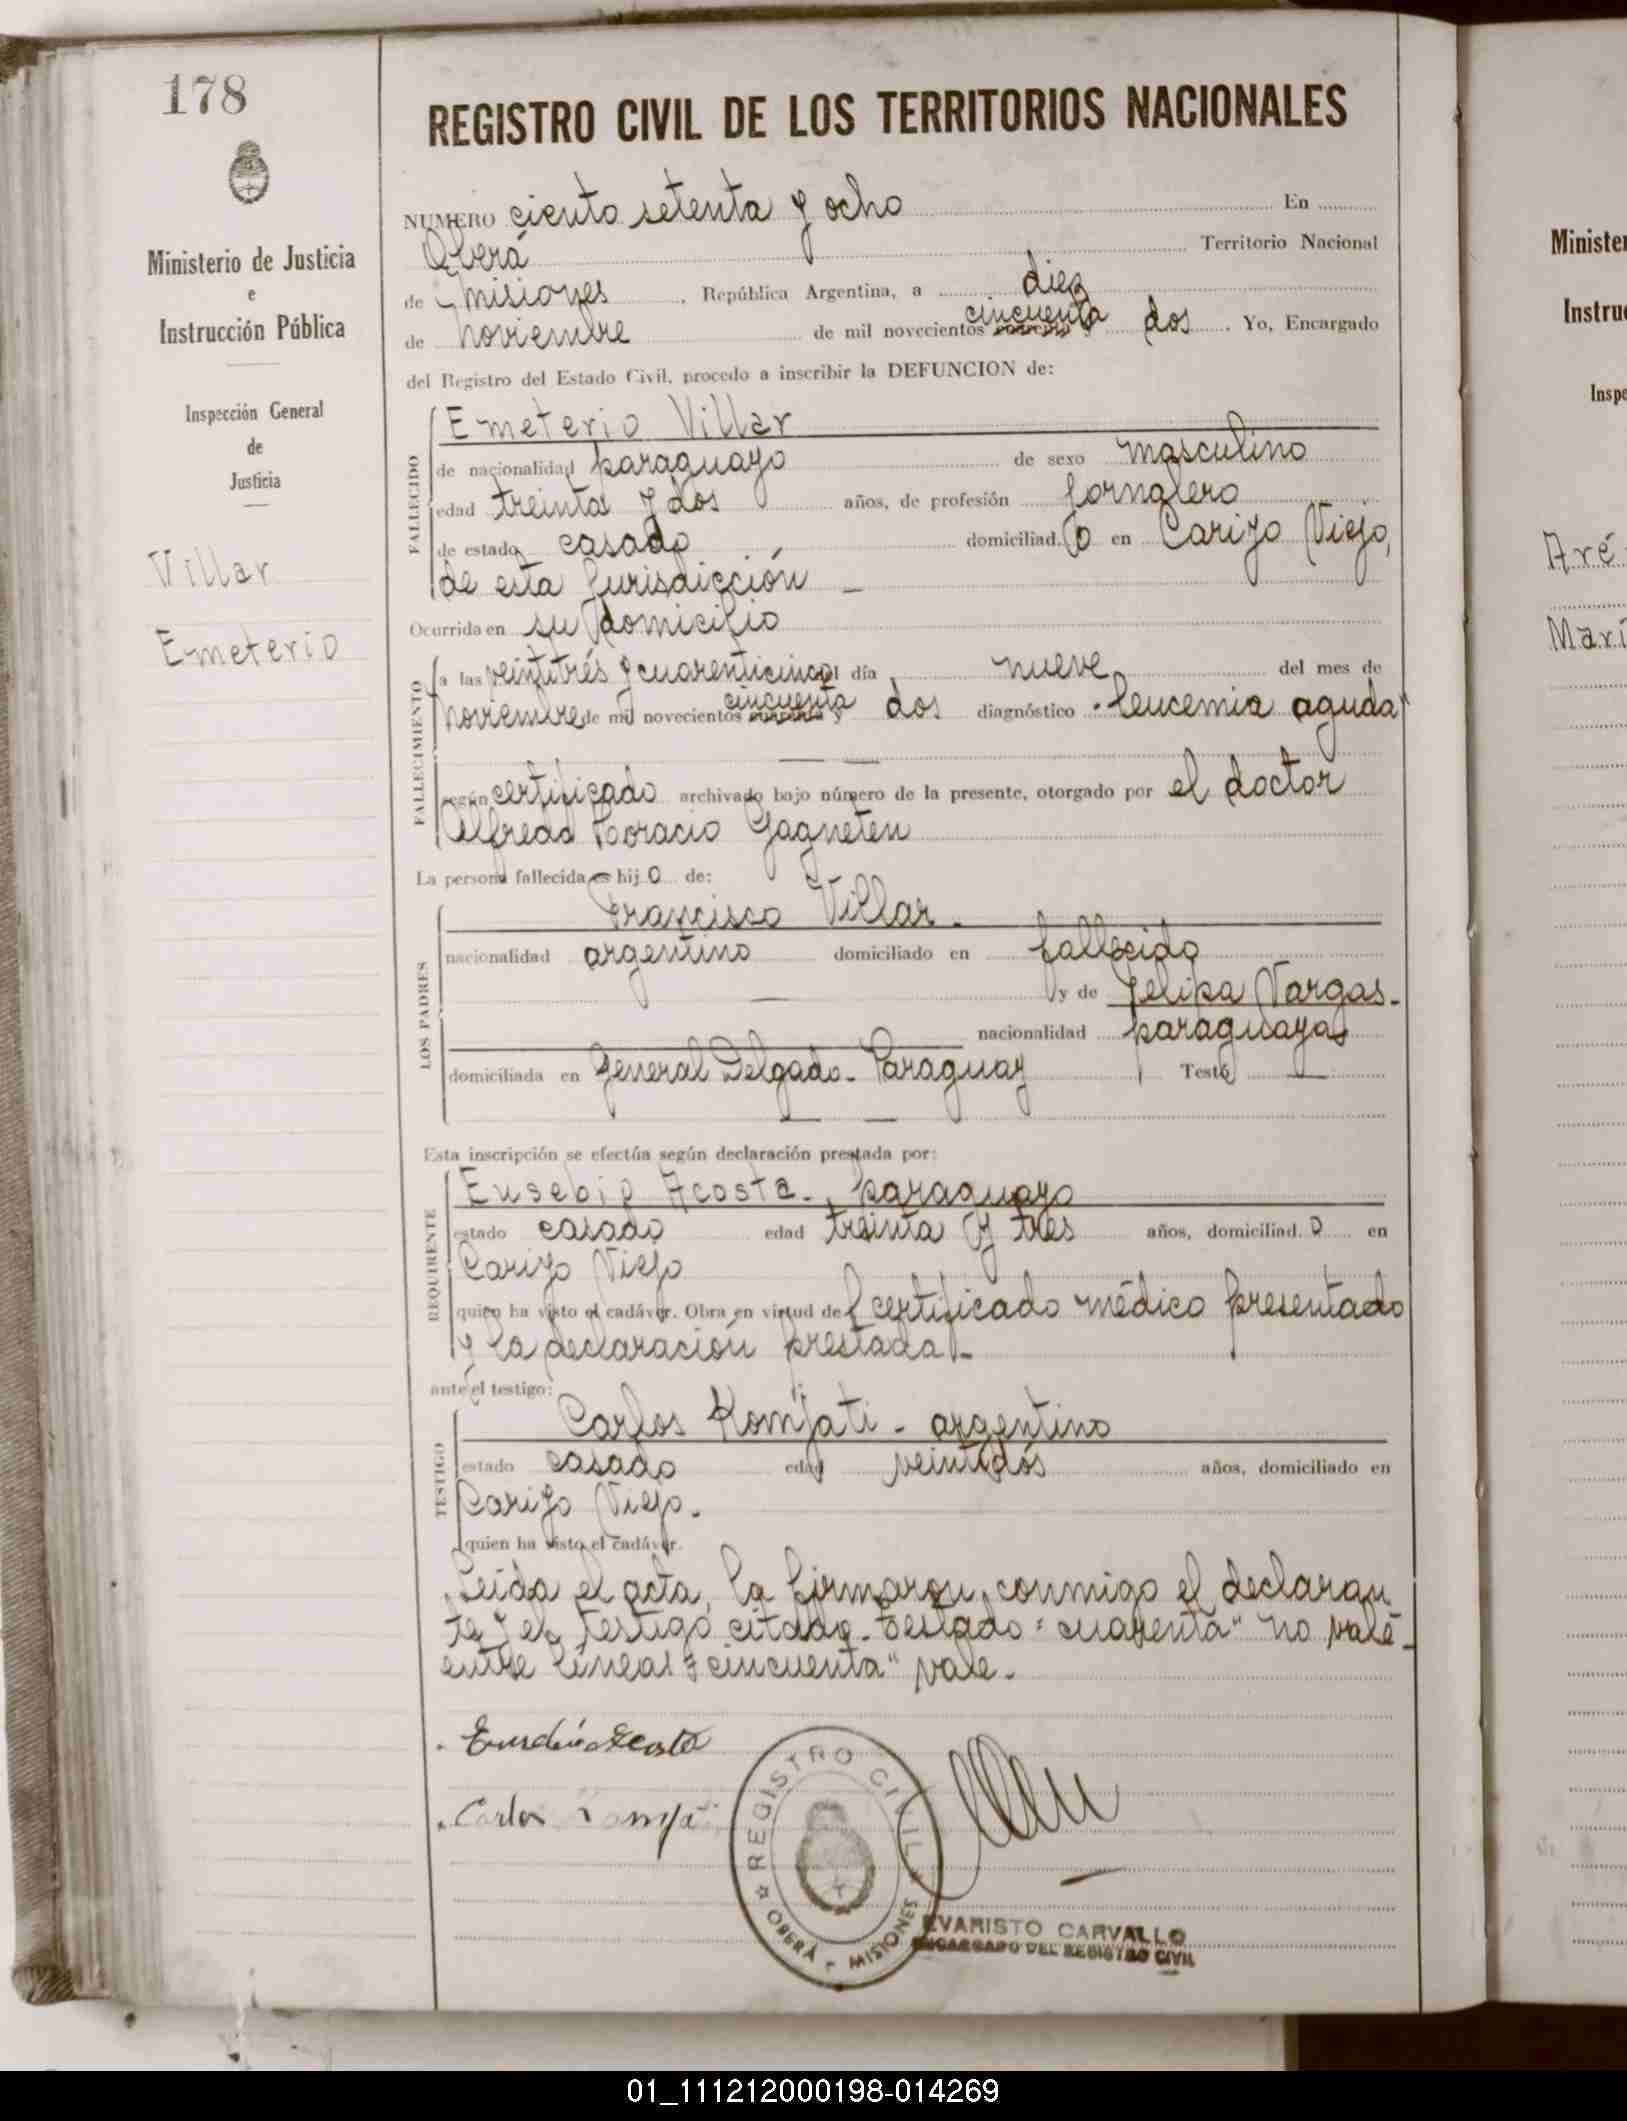 178
REGISTRO CIVIL DE LOS TERRITORIOS NACIONALES
Ministerio de Justicia
e
Instrucción Pública
Inspección General
de
Justicia
Villar
Emeterio
NUMERO ciento setenta y ocho En
Oberá Territorio Nacional
de Misiones, República Argentina, a diez
de Noviembre de mil novecientos cuarenta y cincuenta dos. Yo, Encargado
del Registro del Estado Civil, procedo a inscribir la DEFUNCION de:
FALLECIDO
Emeterio Villar
de nacionalidad paraguayo de sexo masculino
edad treinta y dos años, de profesión Jornalero
de estado casado domiciliad.o en Carizo Viejo,
de esta Jurisdicción —
Ocurrida en su domicilio
FALLECIMIENTO
a las veintitrés y cuarenticinco el día nueve del mes de
Noviembre de mil novecientos cuarenta y cincuenta dos diagnóstico leucemia aguda
según certificado archivado bajo número de la presente, otorgado por el doctor
Alfredo Horacio Gagneten
La persona fallecida es hij o de:
LOS PADRES
Francisco Villar.
nacionalidad argentino domiciliado en fallecido
— y de Felipa Vargas.
nacionalidad paraguaya
domiciliada en General Delgado - Paraguay Testé —
Esta inscripción se efectúa según declaración prestada por:
REQUIRENTE
Eusebio Acosta., paraguayo
estado casado edad treinta y tres años, domiciliad.o en
Carizo Viejo
quien ha visto el cadáver. Obra en virtud del certificado médico presentado
y la declaración prestada.-
ante el testigo:
TESTIGO
Carlos Komjati - argentino
estado casado edad veintidós años, domiciliado en
Carizo Viejo.
quien ha visto el cadáver.
Leida el acta, la firmaron conmigo el declaran
te y el testigo citado. Testado = cuarenta" no vale -
entre líneas = cincuenta" vale.
Eusebio Acosta
Carlos Komjati
REGISTRO CIVIL
OBERÁ - MISIONES
EVARISTO CARVALLO
ENCARGADO DEL REGISTRO CIVIL
Minister
Instruc
Inspe
Aré
Marí
01_111212000198-014269